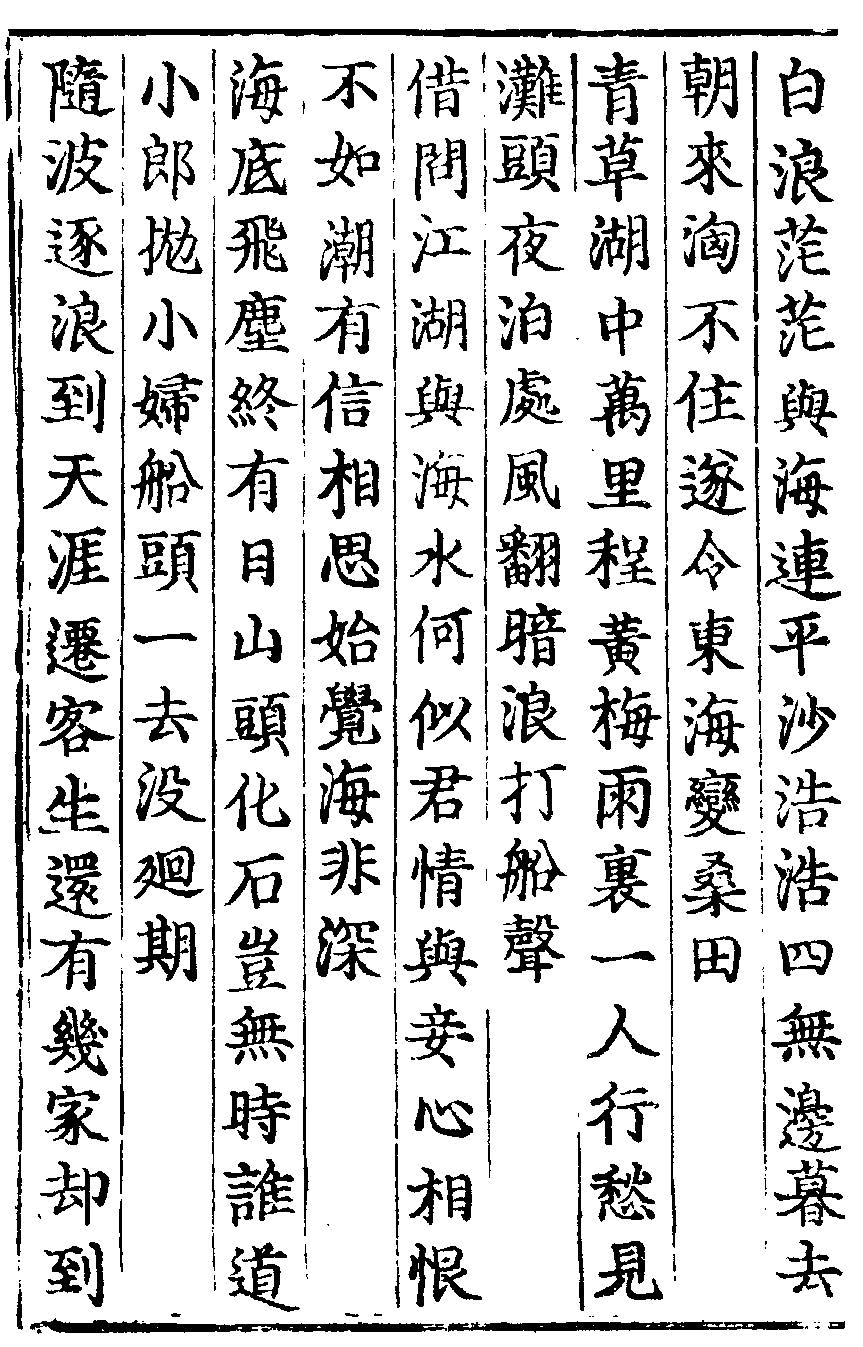 白浪茫茫與海連平沙浩浩四無邊暮去
朝來淘不住遂令東海變桑田
青草湖中萬里程黃梅雨裏一人行愁見
灘頭夜泊處風翻暗浪打船聲
借問江湖與海水何似君情與妾心相恨
不如潮有信相思始覺海非深
海底飛塵終有日山頭化石豈無時誰道
小郎拋小婦船頭一去没迴期
隨波逐浪到天涯遷客生還有幾家却到